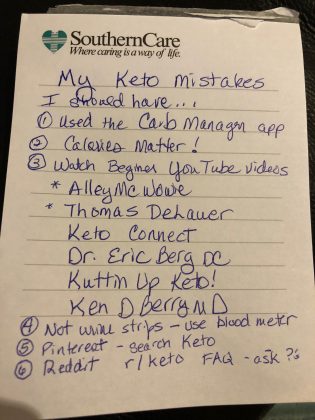 SouthernCare
Where caring is a way of life.
My Keto Mistakes
I should have...
① Used the Carb Manager app
② Calories Matter!
③ Watch Beginner YouTube videos
* Alley McWowe
* Thomas DeLauer
Keto Connect
Dr. Eric Berg DC
Kuttin Up Keto!
Ken D Berry MD
④ Not urine strips - use blood meter
⑤ Pinterest - search Keto
⑥ Reddit r/keto FAQ - ask ?'s